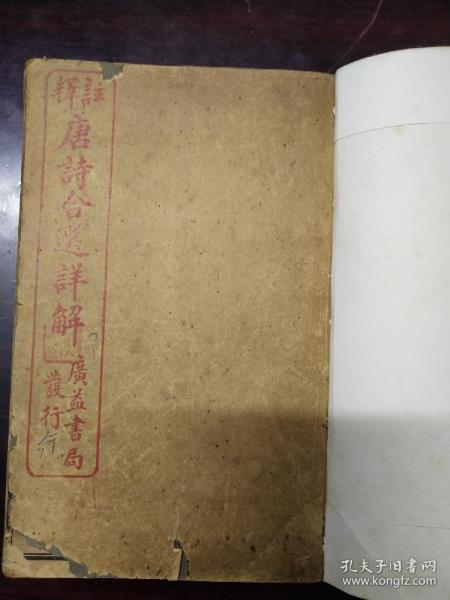 註釋
唐詩合選詳解
廣益書局
發行
孔夫子旧书网
www.kongfz.com